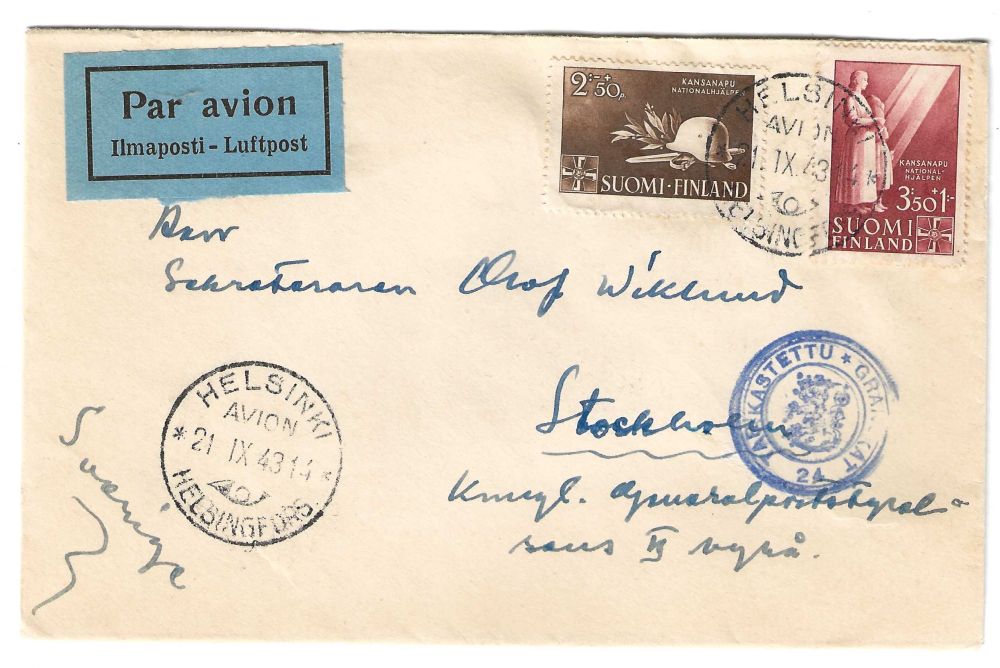 Par avion
Ilmaposti - Luftpost
2:-+
50p.
KANSANAPU
NATIONALHJÄLPEN
SUOMI·FINLAND
KANSANAPU
NATIONAL-
HJÄLPEN
3:50+1:-
SUOMI
FINLAND
HELSINKI
AVION
21. IX.43
HELSINGFORS
Herr
Sekreteraren Olof Wiklund
Stockholm
Kungl. Generalpoststyrel-
sens byrå.
TARKASTETTU * GRANSKAT
24
HELSINKI
AVION
* 21. IX.43 14 *
HELSINGFORS
Sverige